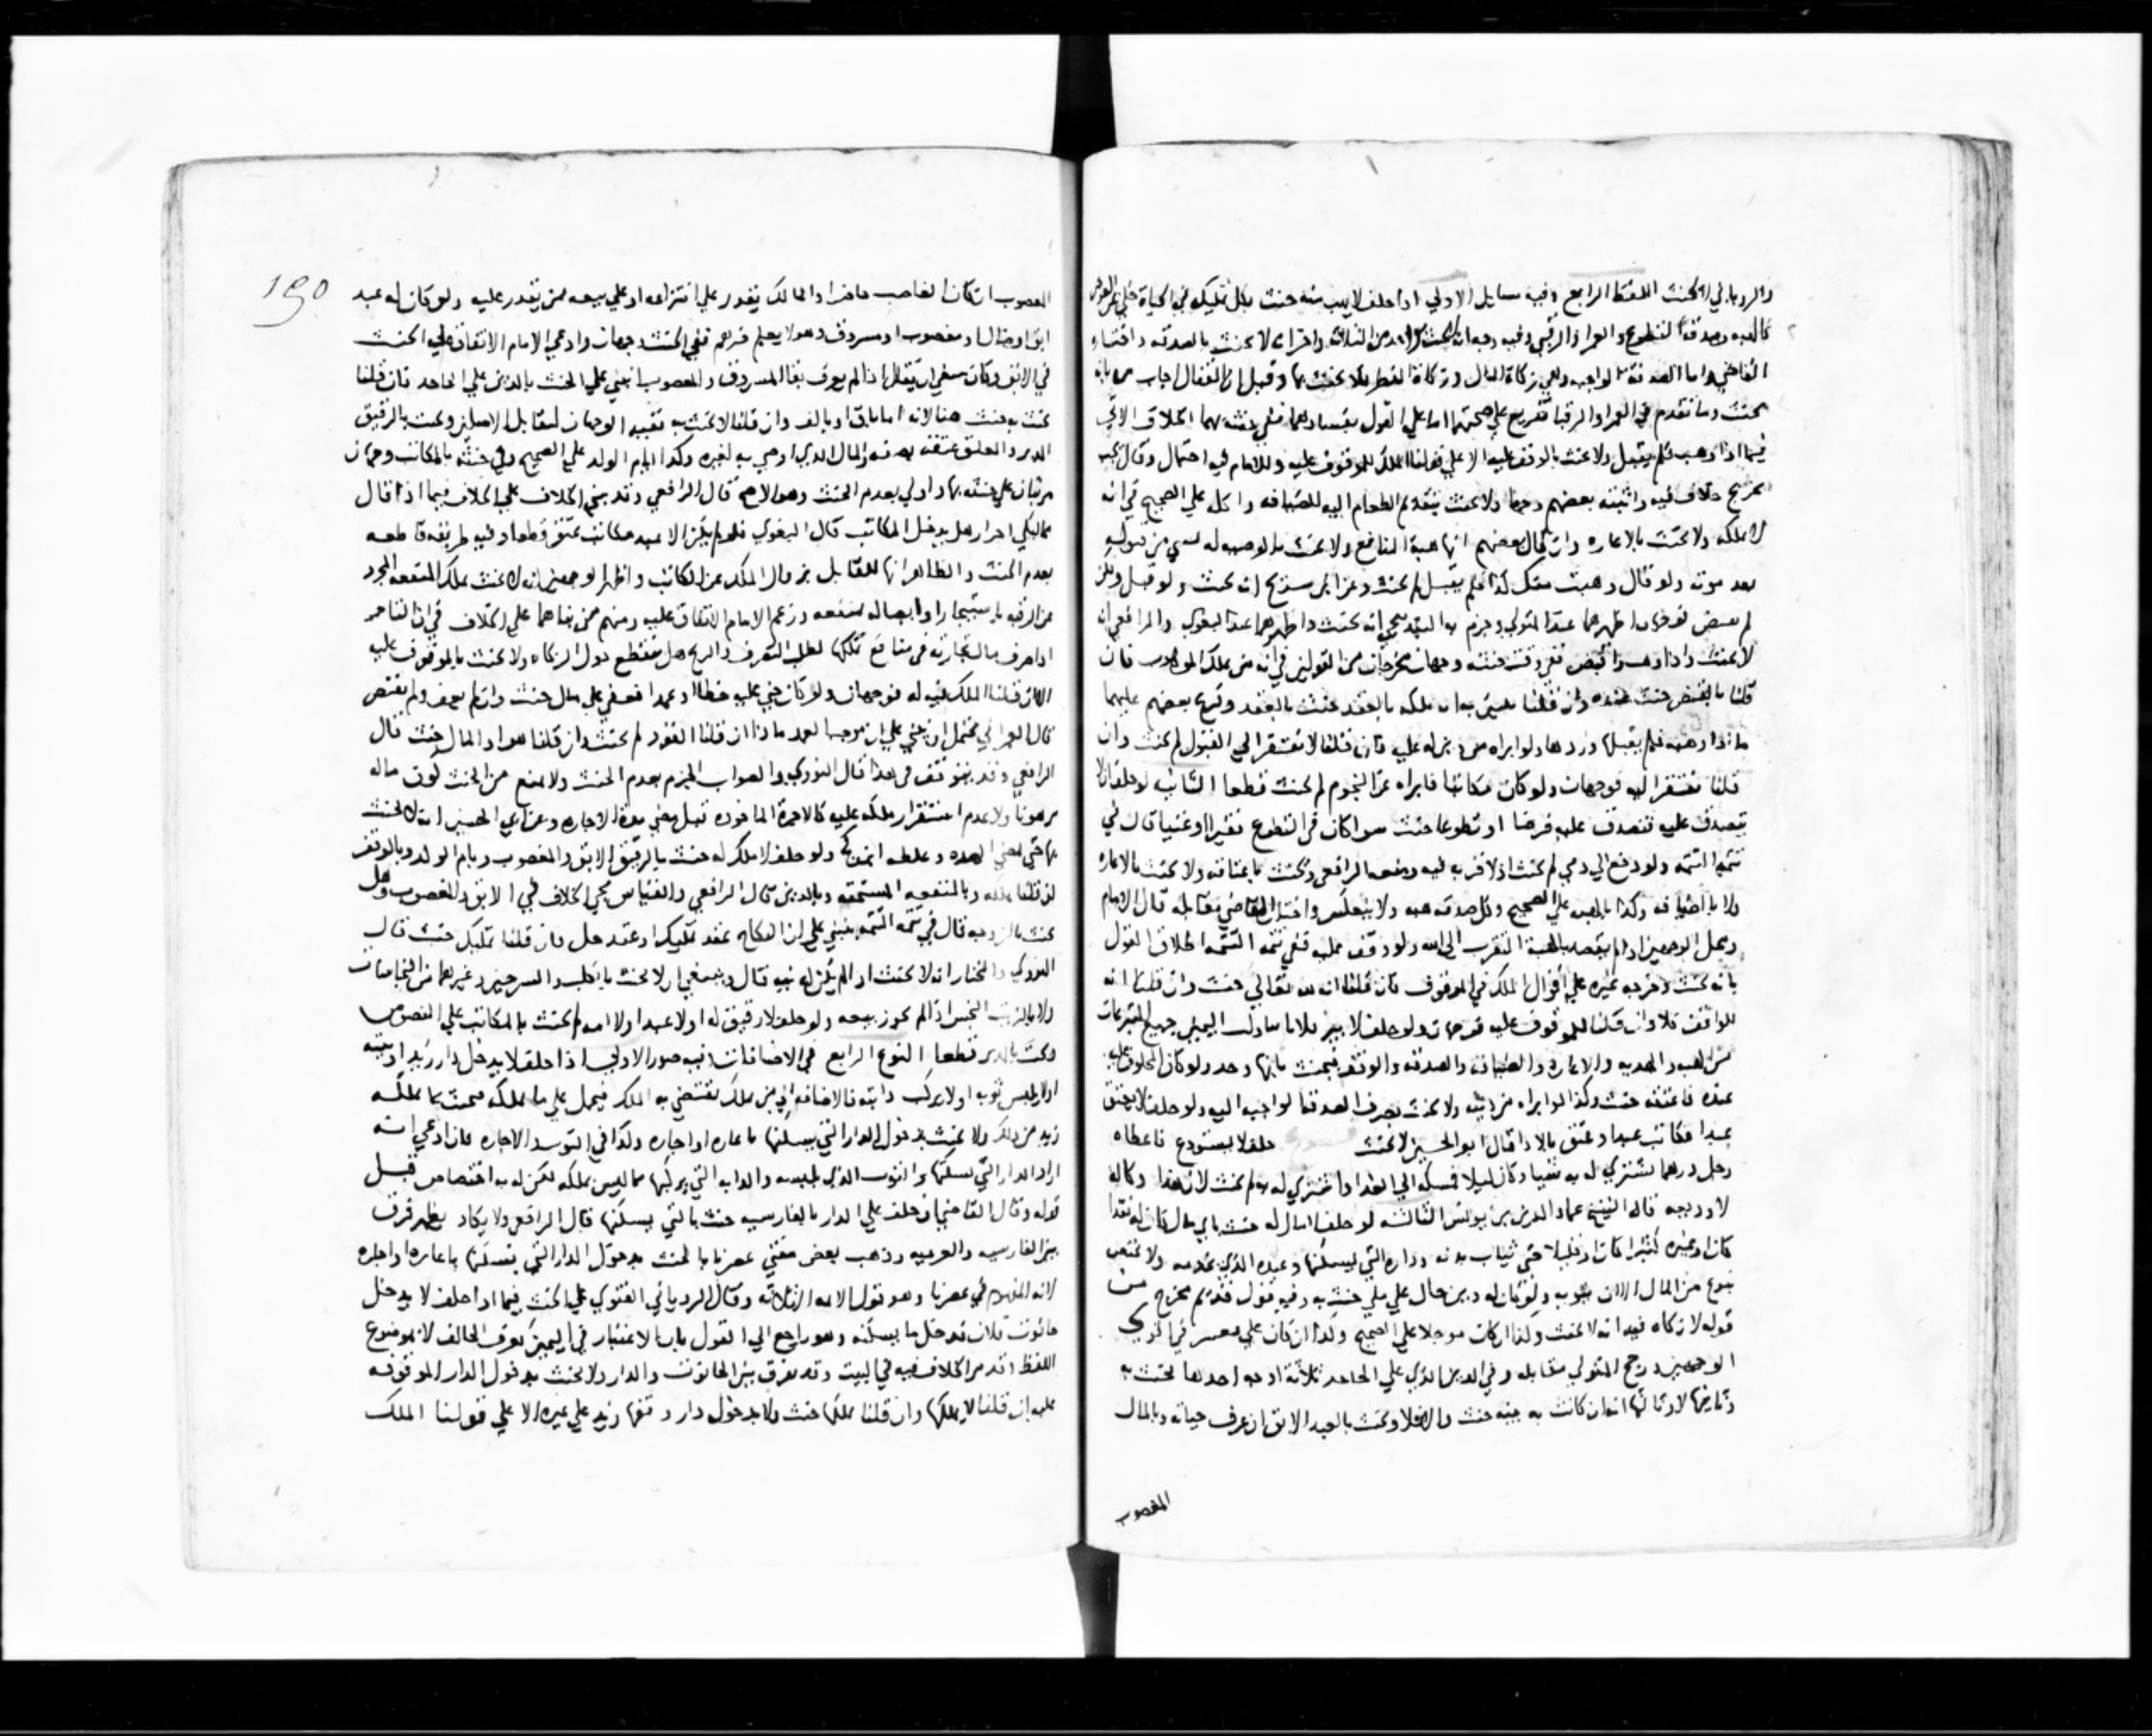 والروياني لا يحنث اللفظ الرابع وفيه مسايل الاولي اذا حلف لا يهب منه حنث بكل تمليك في الحياة خلي عن العوض
كالهبه وصدقة التطوع والعمرا والرقبي وفيه وجه انه لا يحنث بواحد من الثلاثه واخر انه لا يحنث بالصدقه واختاره
القاضي واما الصدقة الواجبه وهي زكاة المال وزكاة الفطر فلا يحنث بها وقيل ان القفال اجاب مره بانه
يحنث وما تقدم في العمرا والرقبا تفريع علي صحتهما اما علي القول بفسادهما ففي حنثه بهما الخلاف الاتي
فيما اذا وهب فلم يقبل ولا يحنث بالوقف عليه الا علي قولنا الملك للموقوف عليه وللامام فيه احتمال وقال يجب
تخريج خلاف فيه واثبته بعضهم وجها ولا يحنث بتقديم الطعام اليه للضيافه واكله علي الصحيح في انه
لا يملكه ولا يحنث بالاعاره وان قال بعضهم انها هبة المنافع ولا يحنث بالوصيه له
بعد موته ولو قال وهبت منك كذا فلم يقبل لم يحنث وعن ابن سريج انه يحنث ولو قبل ولكن
لم يقبض فوجهان اظهرهما عند المتولي وجزم به البندنيجي انه يحنث واظهرهما عند البغوي والرافعي انه
لا يحنث واذا وهب واقبض ففي وقت حنثه وجهان مخرجان من القولين في انه متي يملك الموهوب فان
قلنا بالقبض حنث عنده وان قلنا يتبين به انه ملكه بالعقد حنث بالعقد وفرع بعضهم عليهما
ما اذا وهبه فلم يقبلها وردها ولو ابراه من دين له عليه فان قلنا لا تفتقر الي القبول لم يحنث وان
قلنا تفتقر اليه فوجهان ولو كان مكاتبا فابراه عن النجوم لم يحنث قطعا الثانيه لو حلف ان لا
يتصدق عليه فتصدق عليه فرضا او تطوعا حنث سوا كان في التطوع فقيرا او غنيا قال في
تتمة التتمه ولو دفع الي ذمي لم يحنث اذ لا قربه فيه ومنعه الرافعي ويحنث باعتاقه ولا يحنث بالاعاره
ولا بالضيافه وكذا بالهبه علي الصحيح وكل صدقه هبه ولا ينعكس واختار القاضي مقابله قال الامام
ومحل الوجهين اذا لم يقصد بالهبة التقرب الى الله ولو وقف عليه ففي تتمه التتمه اطلاق القول
بانه يحنث وخرجه غيره علي اقوال الملك في الموقوف فان قلنا انه لله تعالي حنث وان قلنا انه
للواقف فلا وان قلنا للموقوف عليه فوجهان ولو حلف لا يبر فلانا تناولت اليمين جميع التبرعات
من الهبه والهديه والاعاره والضيافه والصدقه والوقف فيحنث بايها وجد ولو كان المحلوف عليه
عبده فاعتقه حنث وكذا لو ابراه من دينه ولا يحنث بصرف الصدقة الواجبه اليه ولو حلف لا يعتق
عبدا فكاتب عبدا وعتق بالادا قال ابو الحسين لا يحنث حلف لا يستودع فاعطاه
رجل درهما ليشتري له به شيا وكان ليلا فمسكه الي الغد واشتري له به لم يحنث لان هذا وكاله
لا وديعه قاله الشيخ عماد الدين بن يونس الثالثه لو حلف لا مال له حنث باي مال كان له نقدا
كان او غيره كثيرا كان او قليلا حتي ثياب بدنه وداره التي يسكنها وعبده الذي يخدمه ولا يختص
بنوع من المال الا ان ينويه ولو كان له دين حال علي ملي حنث به وفيه قول قديم مخرج من
قوله لا زكاه فيه انه لا يحنث وكذا ان كان موجلا علي الصحيح وكذا ان كان علي معسر في اقوي
الوجهين ورجح المتولي مقابله وفي الدين الذي علي الجاحد ثلاثة اوجه احدها يحنث به
وثانيها لا وثالثها انه ان كانت به بينه حنث والا فلا ويحنث بالعبد الابق ان عرف حياته وبالمال
المغصوب
190
المغصوب ان كان الغاصب حاضرا والمالك يقدر علي انتزاعه او علي بيعه ممن يقدر عليه ولو كان له عبد
ابق او ضال او مغصوب او مسروق وهو لا يعلم خبرهم ففي الحنث وجهان وادعي الامام الاتفاق علي الحنث
في الابق وكان ينبغي ان يقال اذا لم يعرف بقا المسروق والمغصوب انبني علي الحنث بالدين علي الجاحد فان قلنا
يحنث به حنث هنا لانه اما باق او تالف وان قلنا لا يحنث به بقيه الوجهان لتقابل الاصلين ويحنث بالرقيق
المدبر والمعلق عتقه بصفه والمال الذي اوصي به لغيره وكذا بام الولد علي الصحيح وفي حنثه بالمكاتب وجهان
مرتبان علي حنثه بها واولي بعدم الحنث وهو الاصح قال الرافعي وقد بني الخلاف علي الخلاف فيما اذا قال
مماليكي احرار هل يدخل المكاتب قال البغوي فلو لم يكن الا عبد مكاتب عتق قطعا وفيه طريقه قاطعه
بعدم الحنث والظاهر انها للقائل بزوال الملك عن المكاتب واظهر الوجهين انه لا يحنث بملك المنفعه المجرد
عن الرقبه باستيجار او ايصا له بمنفعه وزعم الامام الاتفاق عليه ومنهم من بناهما علي الخلاف في ان التاجر
اذا صرف مال تجارته في منافع تملكها لطلب التصرف والربح هل ينقطع حول الزكاه ولا يحنث بالموقوف عليه
الا ان قلنا الملك فيه له فوجهان ولو كان جني عليه خطا او عمدا فعفي علي مال حنث وان لم يعف ولم يقتص
قال العمراني يحتمل ان يبني علي ان موجب العمد ماذا ان قلنا القود لم يحنث وان قلنا هو او المال حنث قال
الرافعي وقد يتوقف في هذا قال النووي والصواب الجزم بعدم الحنث ولا يمنع من الحنث كون ماله
مرهونا ولا عدم استقرار ملكه عليه كالاجرة الماخوذه قبل مضي مدة الاجاره وعن ابي الحسين انه لا يحنث
بها حتي تمضي المده وغلطه ابن كج ولو حلف لا ملك له حنث بالرقيق الابق والمغصوب وبام الولد وبالوقف
ان قلنا يملكه وبالمنفعه المستحقه وبالدين قال الرافعي والقياس مجي الخلاف في الابق والمغصوب وهل
يحنث بالزوجه قال في تتمه التتمه ينبني علي ان النكاح عقد تمليك او عقد حل فان قلنا تمليك حنث قال
النووي والمختار انه لا يحنث اذا لم يكن له نيه قال وينبغي ان لا يحنث بالكلب والسرجين وغيرهما من النجاسات
ولا بالزيت النجس اذا لم نجوز بيعه ولو حلف لا رقيق له او لا عبد او لا امه لم يحنث بالمكاتب علي النصوص
ويحنث بالمدبر قطعا النوع الرابع في الاضافات وفيه صور الاولي اذا حلف لا يدخل دار زيد او بيته
او لا يلبس ثوبه او لا يركب دابته فالاضافه الي من يملك تقتضي به الملك فيحمل علي ما يملكه فيحنث بما يملكه
زيد من ذلك ولا يحنث بدخول الدار التي يسكنها باعاره او اجاره وكذا في الثوب الاجاره فان ادعي انه
اراد الدار التي يسكنها والثوب الذي يلبسه والدابه التي يركبها مما ليس يملكه لكن له به اختصاص قبل
قوله وقال القاضي ان حلف علي الدار بالفارسيه حنث بالتي يسكنها قال الرافعي ولا يكاد يظهر فرق
بين الفارسيه والعربيه وذهب بعض مفتي عصرنا بالحنث بدخول الدار التي يسكنها باعاره او اجاره
لانه المفهوم في عصرنا وهو قول الايمه الثلاثه وقال الروياني الفتوي علي الحنث فيما اذا حلف لا يدخل
حانوت فلان فدخل ما يسكنه وهو راجع الي القول بان الاعتبار في اليمين بعرف الحالف لا بموضوع
اللفظ وقد مر الخلاف فيه في البيت وقد يفرق بين الحانوت والدار ولا يحنث بدخول الدار الموقوفه
عليه ان قلنا لا يملكها وان قلنا يملكها حنث ولا بدخول دار وقفها زيد علي غيره الا علي قولنا الملك